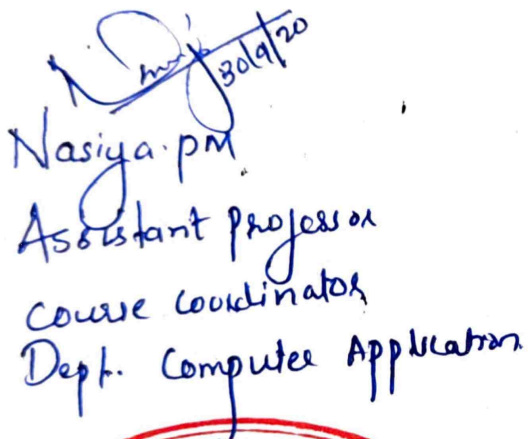 30/9/20
Nasiya.pM
Assistant professor
course coordinator
Dept. Computer Application